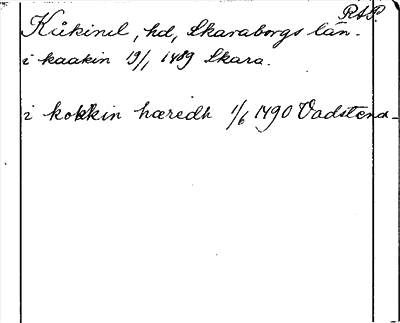 RAP.
Kåkind, hd, Skaraborgs län.
i kaakin 19/1 1489 Skara.
i kokkin hæredh 1/6 1490 Vadstena